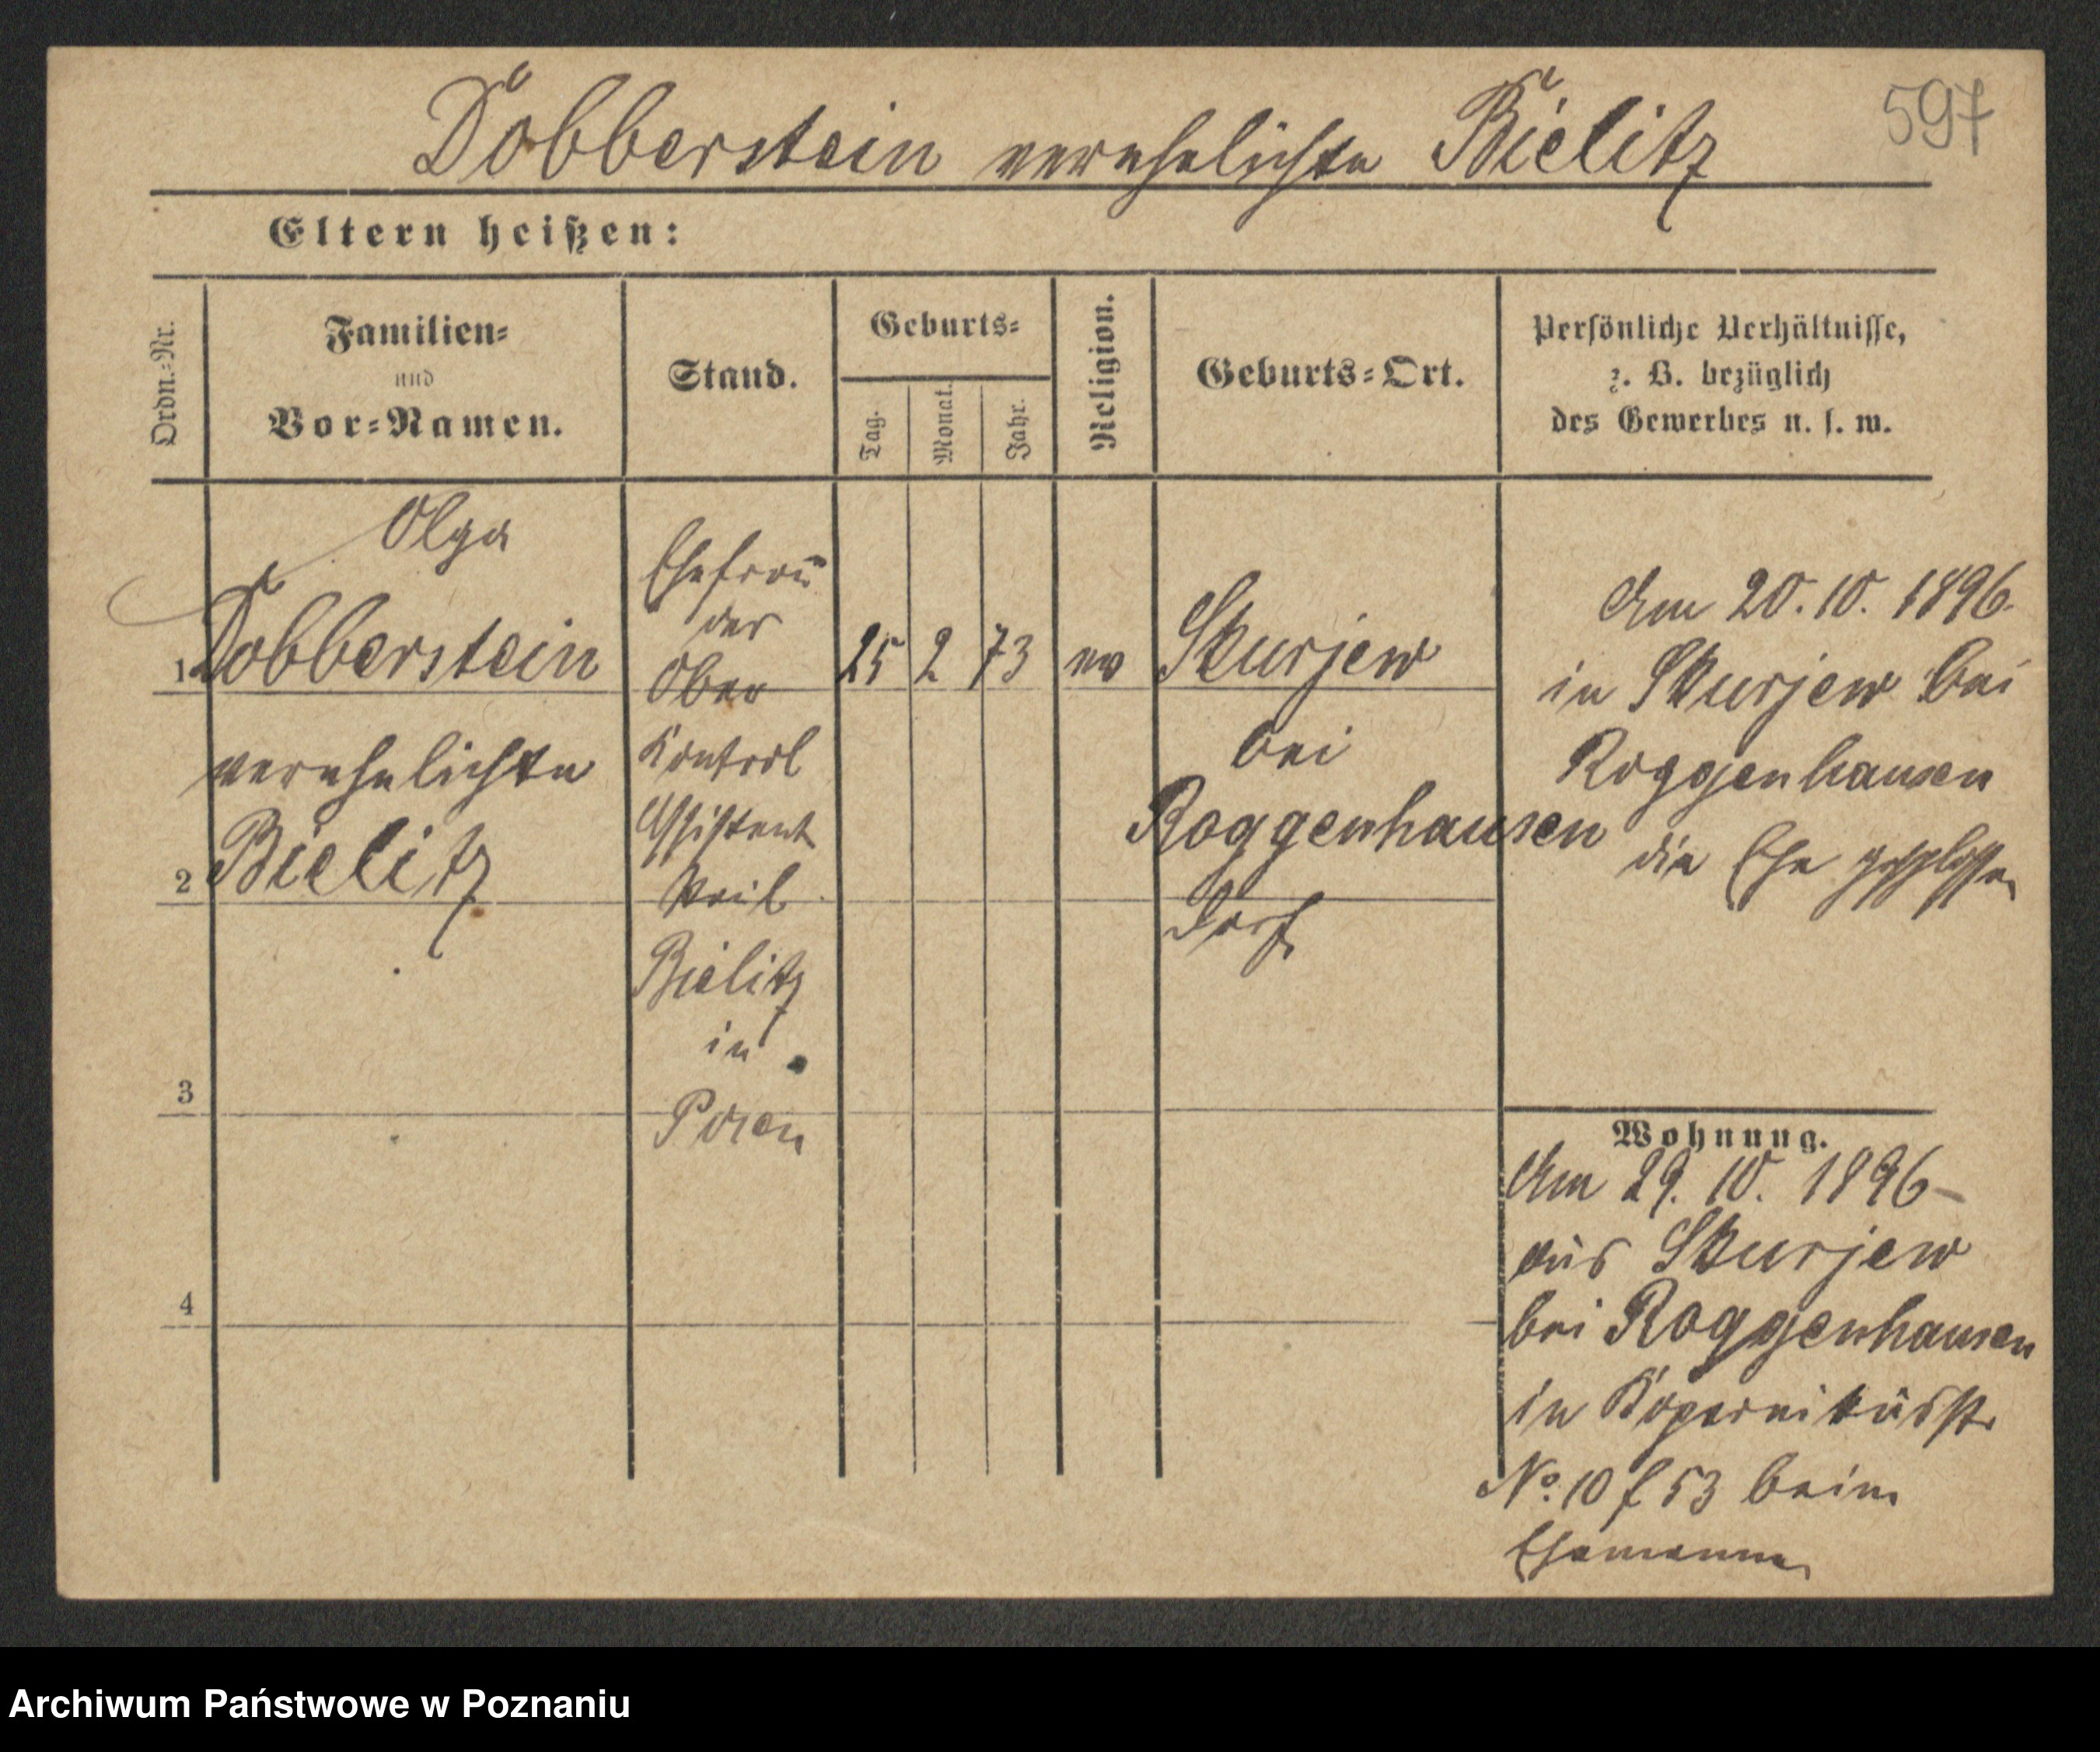 Döbberstein verehelichte Bielitz
597
Eltern heißen:
Ordn.-Nr.
Familien-
und
Vor-Namen.
Stand.
Geburts-
Tag.
Monat.
Jahr.
Religion.
Geburts-Ort.
Persönliche Verhältnisse,
z. B. bezüglich
des Gewerbes u. s. w.
Olga
1 Döbberstein
verehelichte
2 Bielitz
3
4
Ehefrau
des
Ober
Kontrol
Assistent
Bielitz
in
Posen
25 2 73 ev
Skurjew
bei
Roggenhausen
Dorf
Am 20. 10. 1896
in Skurjew bei
Roggenhausen
die Ehe geschlossen
Wohnung.
Am 29. 10. 1896
aus Skurjew
bei Roggenhausen
in Kopernikusstr
No. 10 f 53 beim
Ehemanne
Archiwum Państwowe w Poznaniu